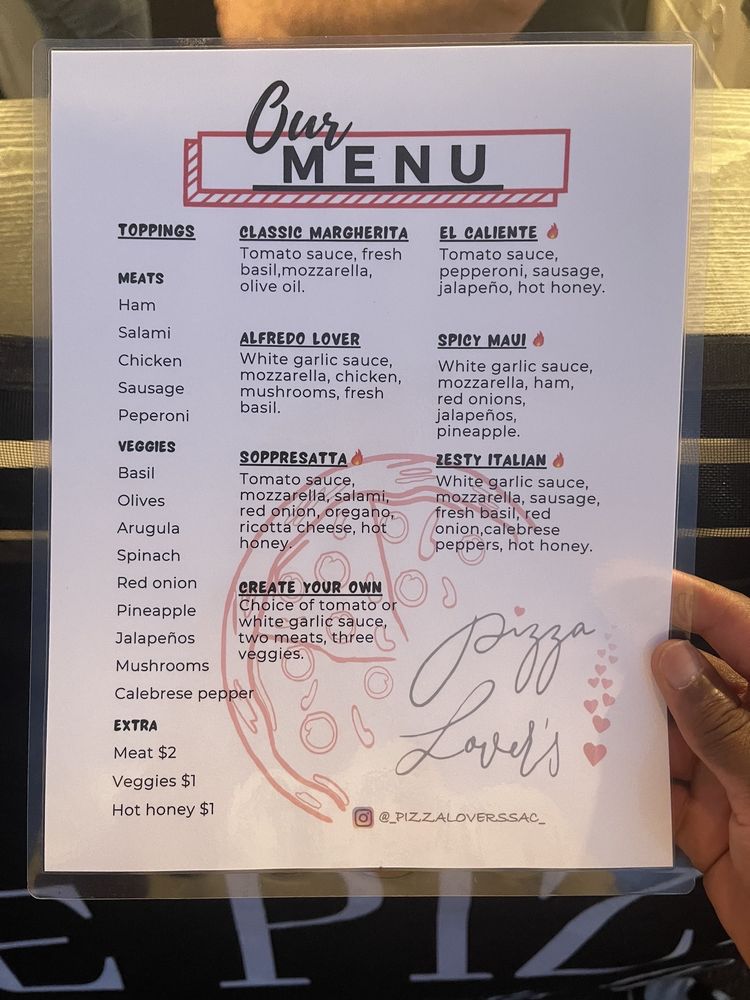 Our
MENU
TOPPINGS
MEATS
Ham
Salami
Chicken
Sausage
Peperoni
VEGGIES
Basil
Olives
Arugula
Spinach
Red onion
Pineapple
Jalapeños
Mushrooms
Calebrese pepper
EXTRA
Meat $2
Veggies $1
Hot honey $1
CLASSIC MARGHERITA
Tomato sauce, fresh
basil,mozzarella,
olive oil.
ALFREDO LOVER
White garlic sauce,
mozzarella, chicken,
mushrooms, fresh
basil.
SOPPRESATTA🔥
Tomato sauce,
mozzarella, salami,
red onion, oregano,
ricotta cheese, hot
honey.
CREATE YOUR OWN
Choice of tomato or
white garlic sauce,
two meats, three
veggies.
EL CALIENTE 🔥
Tomato sauce,
pepperoni, sausage,
jalapeño, hot honey.
SPICY MAUI 🔥
White garlic sauce,
mozzarella, ham,
red onions,
jalapeños,
pineapple.
ZESTY ITALIAN 🔥
White garlic sauce,
mozzarella, sausage,
fresh basil, red
onion,calebrese
peppers, hot honey.
Pizza
Lover's
@_PIZZALOVERSSAC_
E PIZ